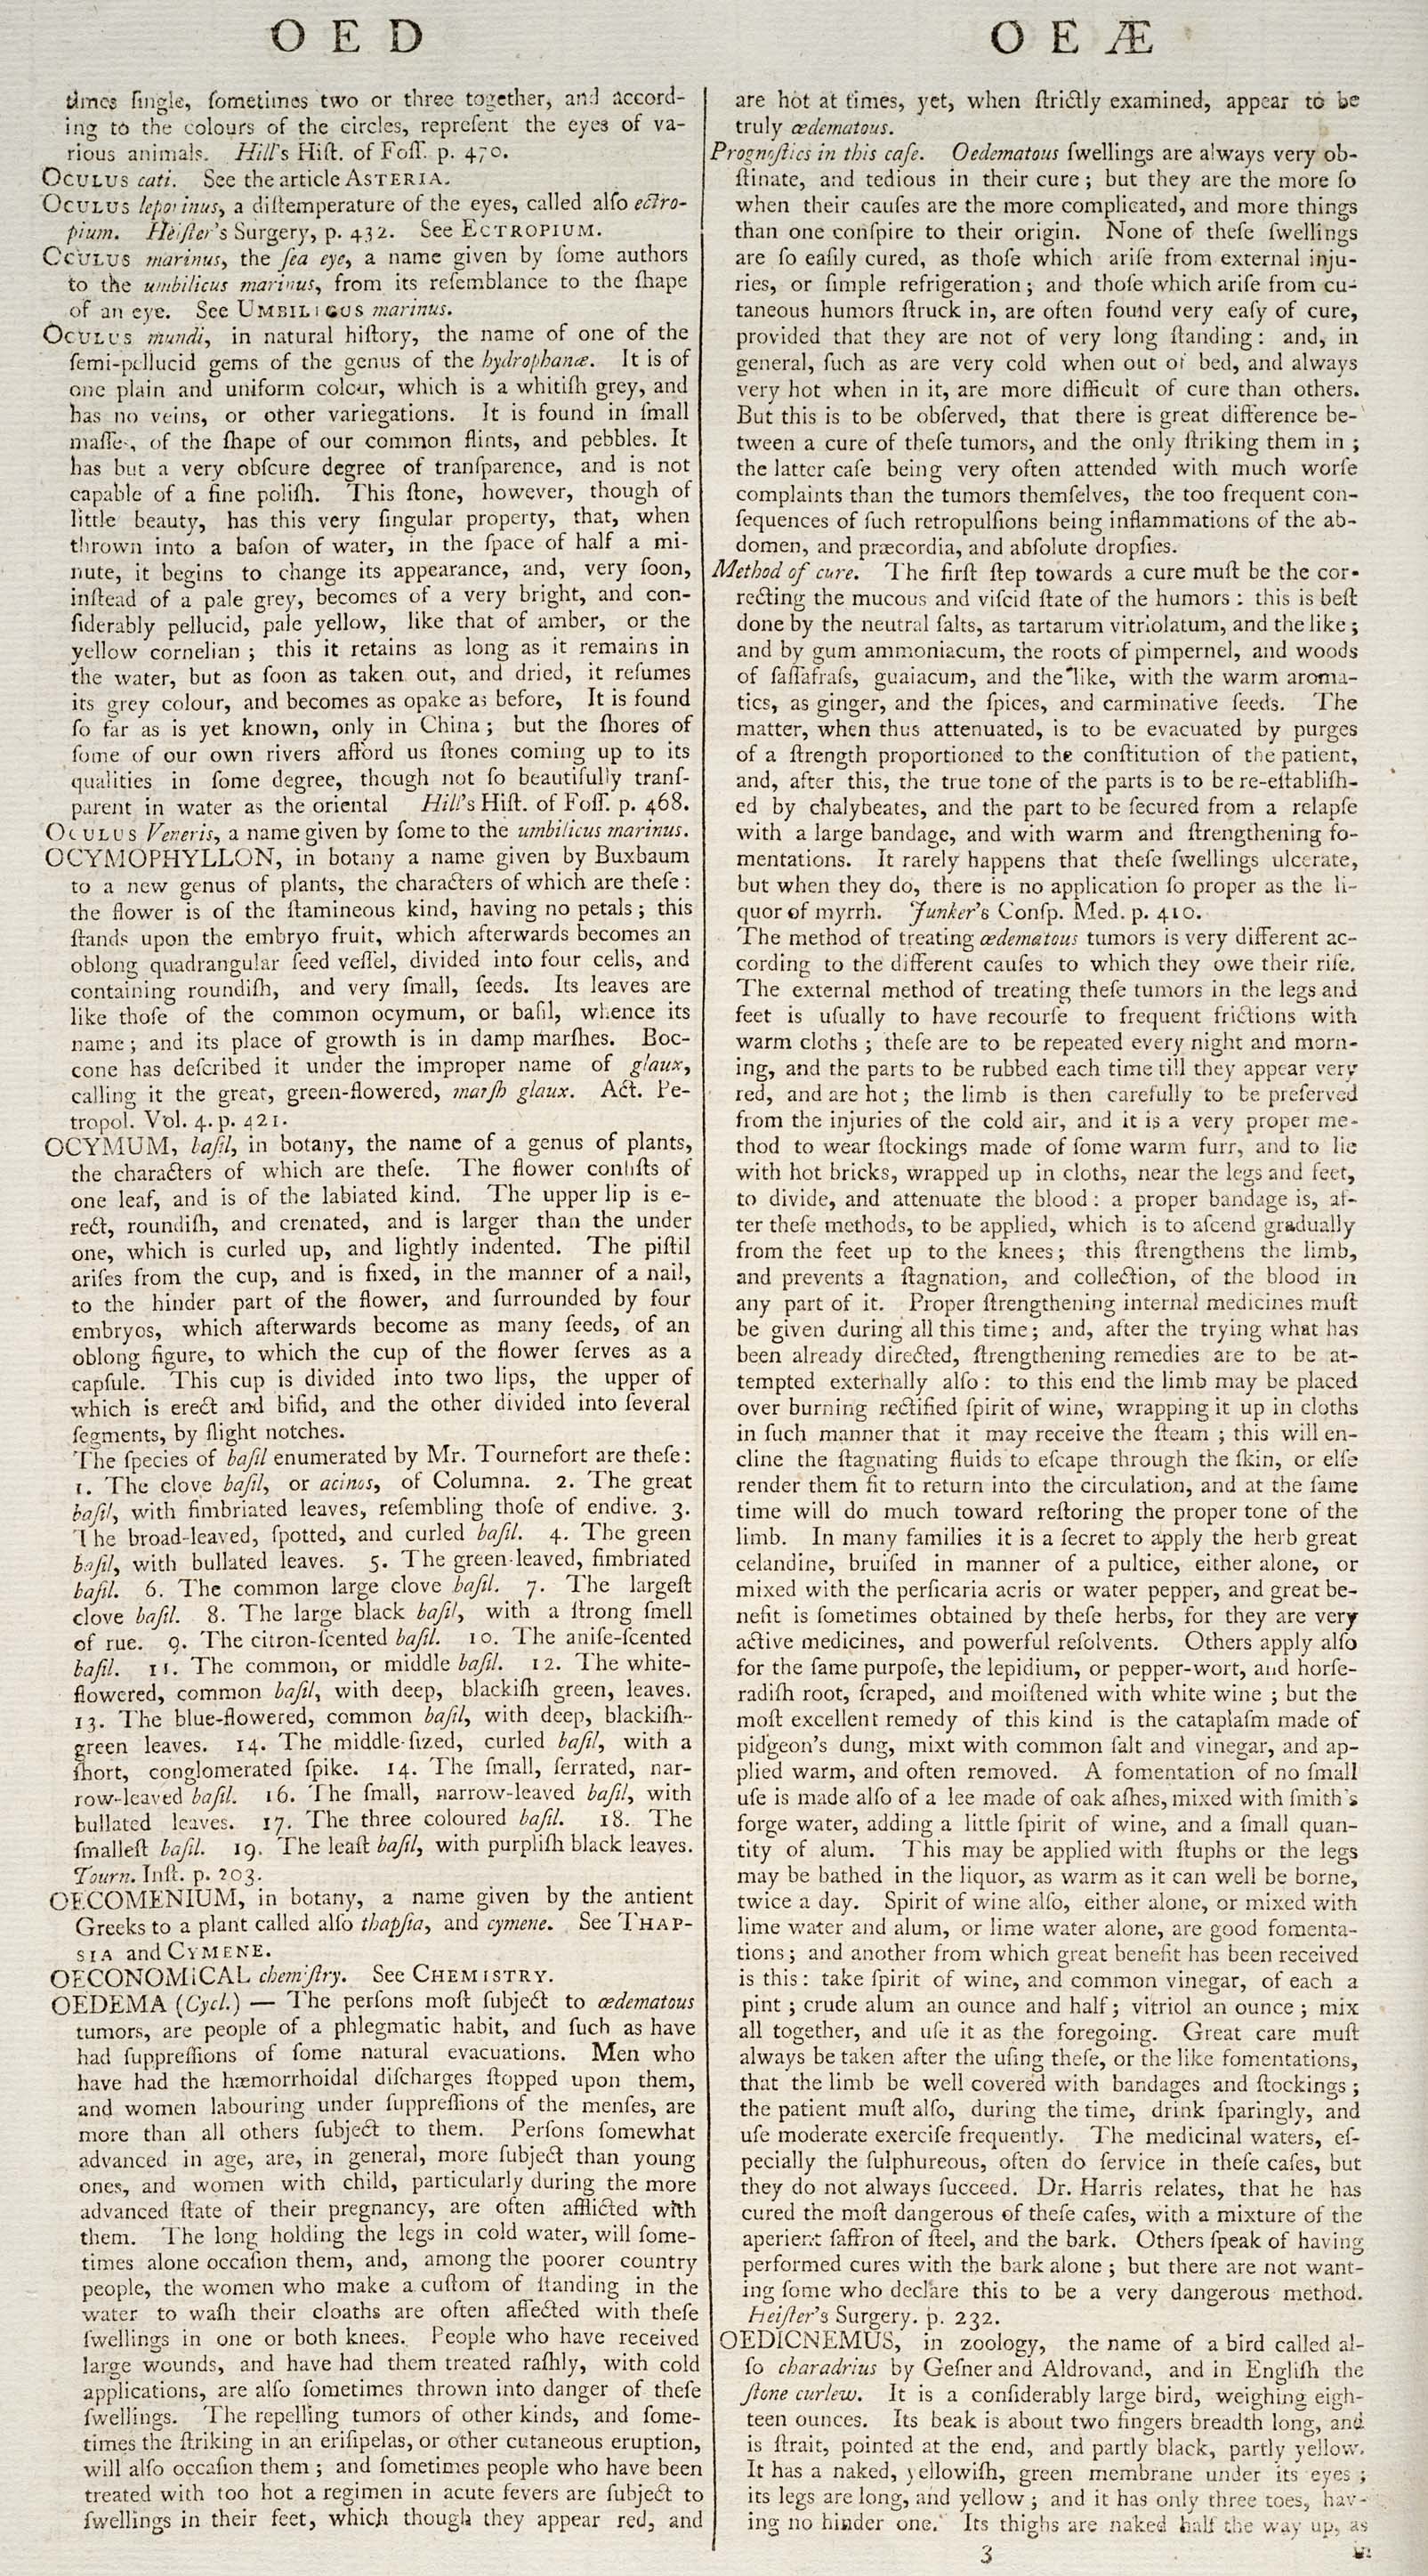 OED
times ſingle, ſometimes two or three together, and accord-
ing to the colours of the circles, repreſent the eyes of va-
rious animals. Hill's Hiſt. of Foſſ. p. 470.
OCULUS cati. See the article ASTERIA.
OCULUS leporinus, a diſtemperature of the eyes, called alſo ectro-
pium. Heiſter's Surgery, p. 432. See ECTROPIUM.
OCULUS marinus, the ſea eye, a name given by ſome authors
to the umbilicus marinus, from its reſemblance to the ſhape
of an eye. See UMBILICUS marinus.
OCULUS mundi, in natural hiſtory, the name of one of the
ſemi-pellucid gems of the genus of the hydrophanæ. It is of
one plain and uniform colour, which is a whitiſh grey, and
has no veins, or other variegations. It is found in ſmall
maſſes, of the ſhape of our common flints, and pebbles. It
has but a very obſcure degree of tranſparence, and is not
capable of a fine poliſh. This ſtone, however, though of
little beauty, has this very ſingular property, that, when
thrown into a baſon of water, in the ſpace of half a mi-
nute, it begins to change its appearance, and, very ſoon,
inſtead of a pale grey, becomes of a very bright, and con-
ſiderably pellucid, pale yellow, like that of amber, or the
yellow cornelian ; this it retains as long as it remains in
the water, but as ſoon as taken out, and dried, it reſumes
its grey colour, and becomes as opake as before, It is found
ſo far as is yet known, only in China ; but the ſhores of
ſome of our own rivers afford us ſtones coming up to its
qualities in ſome degree, though not ſo beautifully tranſ-
parent in water as the oriental Hill's Hiſt. of Foſſ. p. 468.
OCULUS Veneris, a name given by ſome to the umbilicus marinus.
OCYMOPHYLLON, in botany a name given by Buxbaum
to a new genus of plants, the characters of which are theſe :
the flower is of the ſtamineous kind, having no petals ; this
ſtands upon the embryo fruit, which afterwards becomes an
oblong quadrangular ſeed veſſel, divided into four cells, and
containing roundiſh, and very ſmall, ſeeds. Its leaves are
like thoſe of the common ocymum, or baſil, whence its
name ; and its place of growth is in damp marſhes. Boc-
cone has deſcribed it under the improper name of glaux,
calling it the great, green-flowered, marſh glaux. Act. Pe-
tropol. Vol. 4. p. 421.
OCYMUM, baſil, in botany, the name of a genus of plants,
the characters of which are theſe. The flower conſiſts of
one leaf, and is of the labiated kind. The upper lip is e-
rect, roundiſh, and crenated, and is larger than the under
one, which is curled up, and lightly indented. The piſtil
ariſes from the cup, and is fixed, in the manner of a nail,
to the hinder part of the flower, and ſurrounded by four
embryos, which afterwards become as many ſeeds, of an
oblong figure, to which the cup of the flower ſerves as a
capſule. This cup is divided into two lips, the upper of
which is erect and bifid, and the other divided into ſeveral
ſegments, by ſlight notches.
The ſpecies of baſil enumerated by Mr. Tournefort are theſe :
1. The clove baſil, or acinos, of Columna. 2. The great
baſil, with fimbriated leaves, reſembling thoſe of endive. 3.
The broad-leaved, ſpotted, and curled baſil. 4. The green
baſil, with bullated leaves. 5. The green-leaved, fimbriated
baſil. 6. The common large clove baſil. 7. The largeſt
clove baſil. 8. The large black baſil, with a ſtrong ſmell
of rue. 9. The citron-ſcented baſil. 10. The aniſe-ſcented
baſil. 11. The common, or middle baſil. 12. The white-
flowered, common baſil, with deep, blackiſh green, leaves.
13. The blue-flowered, common baſil, with deep, blackiſh-
green leaves. 14. The middle-ſized, curled baſil, with a
ſhort, conglomerated ſpike. 14. The ſmall, ſerrated, nar-
row-leaved baſil. 16. The ſmall, narrow-leaved baſil, with
bullated leaves. 17. The three coloured baſil. 18. The
ſmalleſt baſil. 19. The leaſt baſil, with purpliſh black leaves.
Tourn. Inſt. p. 203.
OECOMENIUM, in botany, a name given by the antient
Greeks to a plant called alſo thapſia, and cymene. See THAP-
SIA and CYMENE.
OECONOMICAL chemiſtry. See CHEMISTRY.
OEDEMA (Cycl.) — The perſons moſt ſubject to œdematous
tumors, are people of a phlegmatic habit, and ſuch as have
had ſuppreſſions of ſome natural evacuations. Men who
have had the hæmorrhoidal diſcharges ſtopped upon them,
and women labouring under ſuppreſſions of the menſes, are
more than all others ſubject to them. Perſons ſomewhat
advanced in age, are, in general, more ſubject than young
ones, and women with child, particularly during the more
advanced ſtate of their pregnancy, are often afflicted with
them. The long holding the legs in cold water, will ſome-
times alone occaſion them, and, among the poorer country
people, the women who make a cuſtom of ſtanding in the
water to waſh their cloaths are often affected with theſe
ſwellings in one or both knees. People who have received
large wounds, and have had them treated raſhly, with cold
applications, are alſo ſometimes thrown into danger of theſe
ſwellings. The repelling tumors of other kinds, and ſome-
times the ſtriking in an eriſipelas, or other cutaneous eruption,
will alſo occaſion them ; and ſometimes people who have been
treated with too hot a regimen in acute fevers are ſubject to
ſwellings in their feet, which though they appear red, and
OEÆ
are hot at times, yet, when ſtrictly examined, appear to be
truly œdematous.
Prognoſtics in this caſe. Oedematous ſwellings are always very ob-
ſtinate, and tedious in their cure ; but they are the more ſo
when their cauſes are the more complicated, and more things
than one conſpire to their origin. None of theſe ſwellings
are ſo eaſily cured, as thoſe which ariſe from external inju-
ries, or ſimple refrigeration ; and thoſe which ariſe from cu-
taneous humors ſtruck in, are often found very eaſy of cure,
provided that they are not of very long ſtanding : and, in
general, ſuch as are very cold when out of bed, and always
very hot when in it, are more difficult of cure than others.
But this is to be obſerved, that there is great difference be-
tween a cure of theſe tumors, and the only ſtriking them in ;
the latter caſe being very often attended with much worſe
complaints than the tumors themſelves, the too frequent con-
ſequences of ſuch retropulſions being inflammations of the ab-
domen, and præcordia, and abſolute dropſies.
Method of cure. The firſt ſtep towards a cure muſt be the cor-
recting the mucous and viſcid ſtate of the humors : this is beſt
done by the neutral ſalts, as tartarum vitriolatum, and the like ;
and by gum ammoniacum, the roots of pimpernel, and woods
of ſaſſafraſs, guaiacum, and the like, with the warm aroma-
tics, as ginger, and the ſpices, and carminative ſeeds. The
matter, when thus attenuated, is to be evacuated by purges
of a ſtrength proportioned to the conſtitution of the patient,
and, after this, the true tone of the parts is to be re-eſtabliſh-
ed by chalybeates, and the part to be ſecured from a relapſe
with a large bandage, and with warm and ſtrengthening fo-
mentations. It rarely happens that theſe ſwellings ulcerate,
but when they do, there is no application ſo proper as the li-
quor of myrrh. Junker's Conſp. Med. p. 410.
The method of treating œdematous tumors is very different ac-
cording to the different cauſes to which they owe their riſe.
The external method of treating theſe tumors in the legs and
feet is uſually to have recourſe to frequent frictions with
warm cloths ; theſe are to be repeated every night and morn-
ing, and the parts to be rubbed each time till they appear very
red, and are hot ; the limb is then carefully to be preſerved
from the injuries of the cold air, and it is a very proper me-
thod to wear ſtockings made of ſome warm furr, and to lie
with hot bricks, wrapped up in cloths, near the legs and feet,
to divide, and attenuate the blood : a proper bandage is, af-
ter theſe methods, to be applied, which is to aſcend gradually
from the feet up to the knees ; this ſtrengthens the limb,
and prevents a ſtagnation, and collection, of the blood in
any part of it. Proper ſtrengthening internal medicines muſt
be given during all this time ; and, after the trying what has
been already directed, ſtrengthening remedies are to be at-
tempted externally alſo : to this end the limb may be placed
over burning rectified ſpirit of wine, wrapping it up in cloths
in ſuch manner that it may receive the ſteam ; this will en-
cline the ſtagnating fluids to eſcape through the ſkin, or elſe
render them fit to return into the circulation, and at the ſame
time will do much toward reſtoring the proper tone of the
limb. In many families it is a ſecret to apply the herb great
celandine, bruiſed in manner of a pultice, either alone, or
mixed with the perſicaria acris or water pepper, and great be-
nefit is ſometimes obtained by theſe herbs, for they are very
active medicines, and powerful reſolvents. Others apply alſo
for the ſame purpoſe, the lepidium, or pepper-wort, and horſe-
radiſh root, ſcraped, and moiſtened with white wine ; but the
moſt excellent remedy of this kind is the cataplaſm made of
pidgeon's dung, mixt with common ſalt and vinegar, and ap-
plied warm, and often removed. A fomentation of no ſmall
uſe is made alſo of a lee made of oak aſhes, mixed with ſmith's
forge water, adding a little ſpirit of wine, and a ſmall quan-
tity of alum. This may be applied with ſtuphs or the legs
may be bathed in the liquor, as warm as it can well be borne,
twice a day. Spirit of wine alſo, either alone, or mixed with
lime water and alum, or lime water alone, are good fomenta-
tions ; and another from which great benefit has been received
is this : take ſpirit of wine, and common vinegar, of each a
pint ; crude alum an ounce and half ; vitriol an ounce ; mix
all together, and uſe it as the foregoing. Great care muſt
always be taken after the uſing theſe, or the like fomentations,
that the limb be well covered with bandages and ſtockings ;
the patient muſt alſo, during the time, drink ſparingly, and
uſe moderate exerciſe frequently. The medicinal waters, eſ-
pecially the ſulphureous, often do ſervice in theſe caſes, but
they do not always ſucceed. Dr. Harris relates, that he has
cured the moſt dangerous of theſe caſes, with a mixture of the
aperient ſaffron of ſteel, and the bark. Others ſpeak of having
performed cures with the bark alone ; but there are not want-
ing ſome who declare this to be a very dangerous method.
Heiſter's Surgery. p. 232.
OEDICNEMUS, in zoology, the name of a bird called al-
ſo charadrius by Geſner and Aldrovand, and in Engliſh the
ſtone curlew. It is a conſiderably large bird, weighing eigh-
teen ounces. Its beak is about two fingers breadth long, and
is ſtrait, pointed at the end, and partly black, partly yellow.
It has a naked, yellowiſh, green membrane under its eyes ;
its legs are long, and yellow ; and it has only three toes, hav-
ing no hinder one. Its thighs are naked half the way up, as
3
in